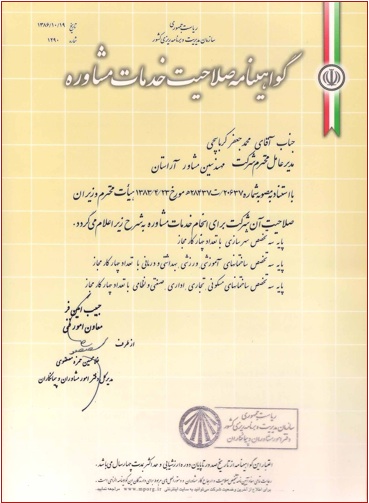 ریاست جمهوری
سازمان مدیریت و برنامه ریزی کشور
تاریخ ۱۳۸۶/۱۰/۱۹
شماره ۱۲۹۰
گواهینامه صلاحیت خدمات مشاوره
جناب آقای محمد جعفر کرباسچی
مدیرعامل محترم شرکت مهندسین مشاور آراستان
با استناد مصوبه شماره ۲۰۶۳۷/ت۲۸۴۳۷ه مورخ ۱۳۸۳/۴/۲۳ هیأت محترم وزیران
صلاحیت آن شرکت برای انجام خدمات مشاوره به شرح زیر اعلام می گردد.
پایه سه تخصص شهرسازی با تعداد چهار کار مجاز
پایه سه تخصص ساختمانهای آموزشی ورزشی بهداشتی و درمانی با تعداد چهار کار مجاز
پایه سه تخصص ساختمانهای مسکونی تجاری اداری صنعتی و نظامی با تعداد چهار کار مجاز
حبیب امین فر
معاون امور فنی
از طرف
غلامحسین حمزه مصطفوی
مدیر کل دفتر امور مشاوران و پیمانکاران
ریاست جمهوری
سازمان مدیریت و برنامه ریزی کشور
دفتر امور مشاوران و پیمانکاران
اعتبار این گواهینامه از تاریخ صدور تا پایان دوره ارزشیابی و حداکثر بمدت چهار سال می باشد.